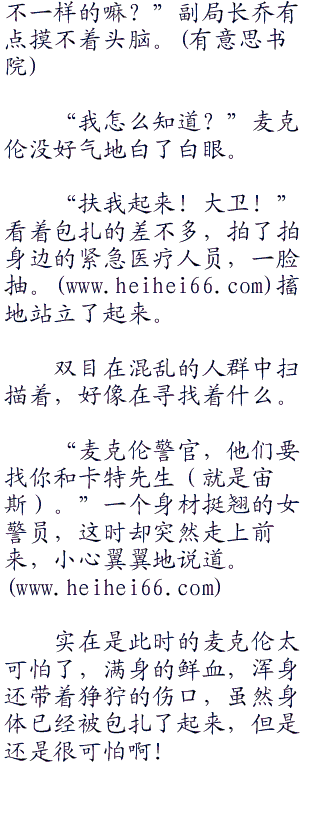 不一样的嘛？”副局长乔有
点摸不着头脑。(有意思书
院)
“我怎么知道？”麦克
伦没好气地白了白眼。
“扶我起来！大卫！”
看着包扎的差不多，拍了拍
身边的紧急医疗人员，一脸
抽。(www.heihei66.com)搐
地站立了起来。
双目在混乱的人群中扫
描着，好像在寻找着什么。
“麦克伦警官，他们要
找你和卡特先生（就是宙
斯）。”一个身材挺翘的女
警员，这时却突然走上前
来，小心翼翼地说道。
(www.heihei66.com)
实在是此时的麦克伦太
可怕了，满身的鲜血，浑身
还带着狰狞的伤口，虽然身
体已经被包扎了起来，但是
还是很可怕啊！